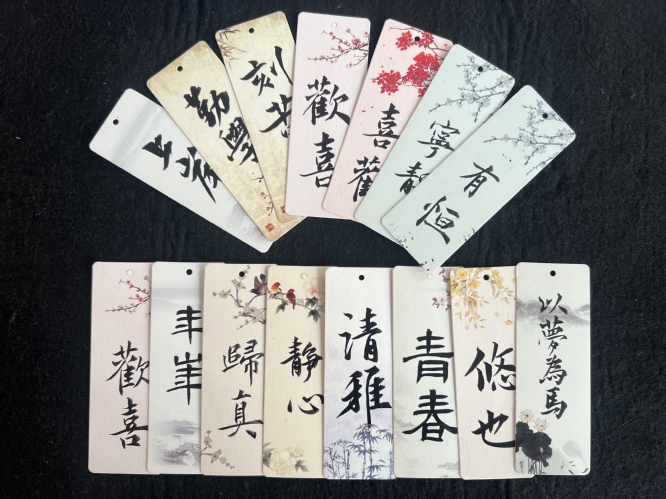 勤學
刻苦
歡喜
喜歡
寧靜
有恒
歡喜
歸真
靜心
清雅
青春
悠也
以夢為馬